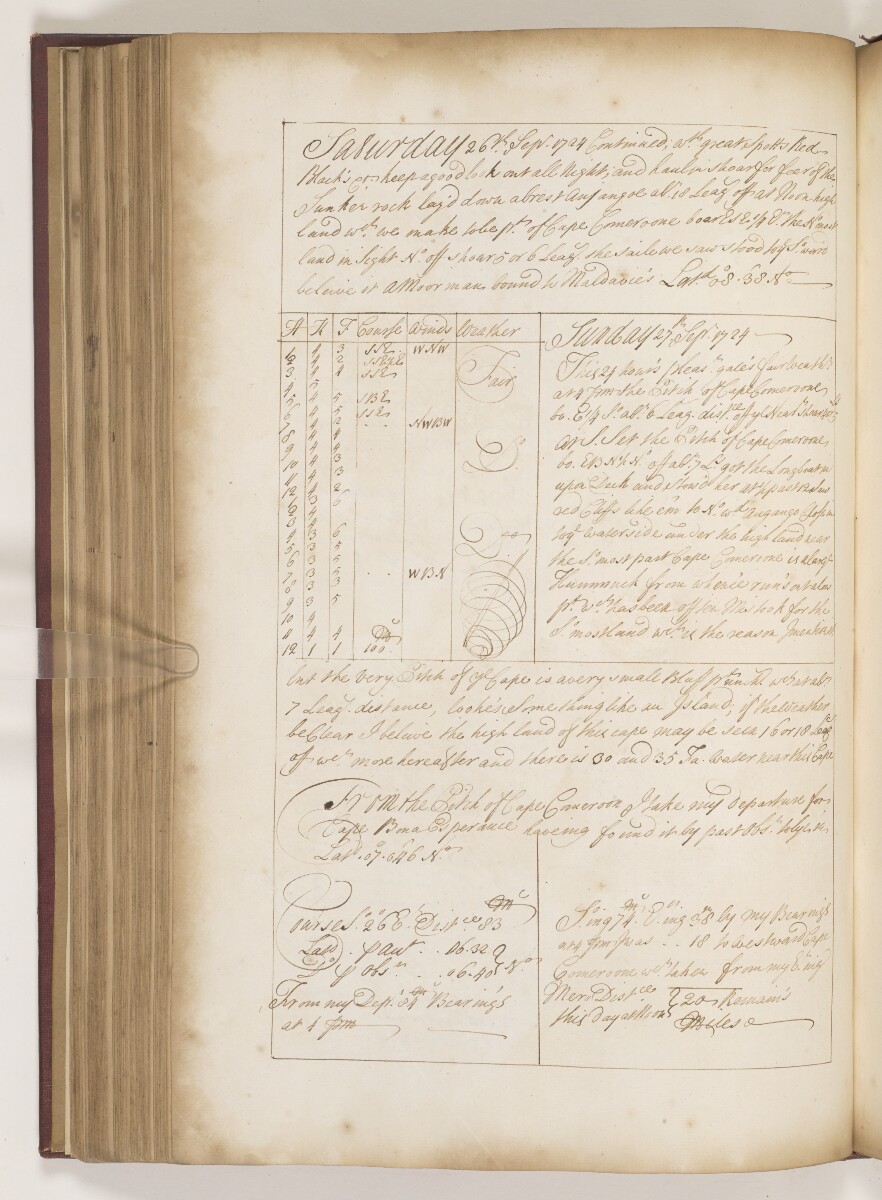 Saturday 26th Sepr. 1724 Continued; a great spotts Red
Black's keep a good look out all Night, and haul in shoar for fear of the
Sunken rock lay'd down abrest Anjango abt. 18 Leag off at Noon high
land wch. we make tobe pt. of Cape Comeroone boar ESE 1/4 E the No. most
land in sight No. off shoar 5 or 6 Leag. the saile we saw stood to ye So. ward
beleive it a Moor man bound to Maldavie's Latd. 08.38 No
H K F Course Winds Weather
1 4 3 SSE WNW
2 4 2
3 4 4 SSE
4 5
5 4 5 SBE
6 4 5 SSE
7 4 NWBW
8 4 4
9 4 3
10 4 3
11 4 3
12 4 2
4 3 6
5 3 5
6 3 5
7 3 5 WBN
8 3 3
9 3 5
10 4
11 4 4
12 1 1 100
Fair
Sunday 27th Sepr. 1724
This 24 hour's pleast. gale's fair Weathr.
at 4 pm the Pitch of Cape Comeroone
bo. E 1/4 So. abt. 6 Leag. distce. off ye Neast Shoar
at S. Set the Pitch of Cape Comeroone
bo. EBN 1/2 No. off abt. 7 Ls. got the Longboat in
upon Deck and stow'd her at 1/2 past 12
red Cliffs like em to No. wth. close in
to ye waterside under the high land near
the So. most part Cape Comeroone is a large
Hummuck from whence run's out a low
pt. wch. has been often Mistook for the
So. most land wch. is the reason
but the very Pitch of ye Cape is a very small Bluff pt. at abt
7 Leag. distance, looke's something like an Island, if the weather
be Clear I beleive the high land of this cape may be seen 16 or 18 Leag
off wch. more hereafter and there is 30 and 35 Fa. Water near this Cape
From the Pitch of Cape Comeroon I take my Departure for
Cape Bona Esperance haveing found it by past Obsn. to lye in
Latd. 07.646 No
Course So. 26 E Distce. 83
Latd. p acct. 06.32
Do p obsn. 06.40 No
From my Dept. 84 Bearing's
at 4 pm
So. ing 74 E ing 38 by my Bearing's
at 4 pm I was .. 18 to westward Cape
Comeroone wch. taken from my E ing
Mern Distce. 20 Remain's
this day at Noon Miles